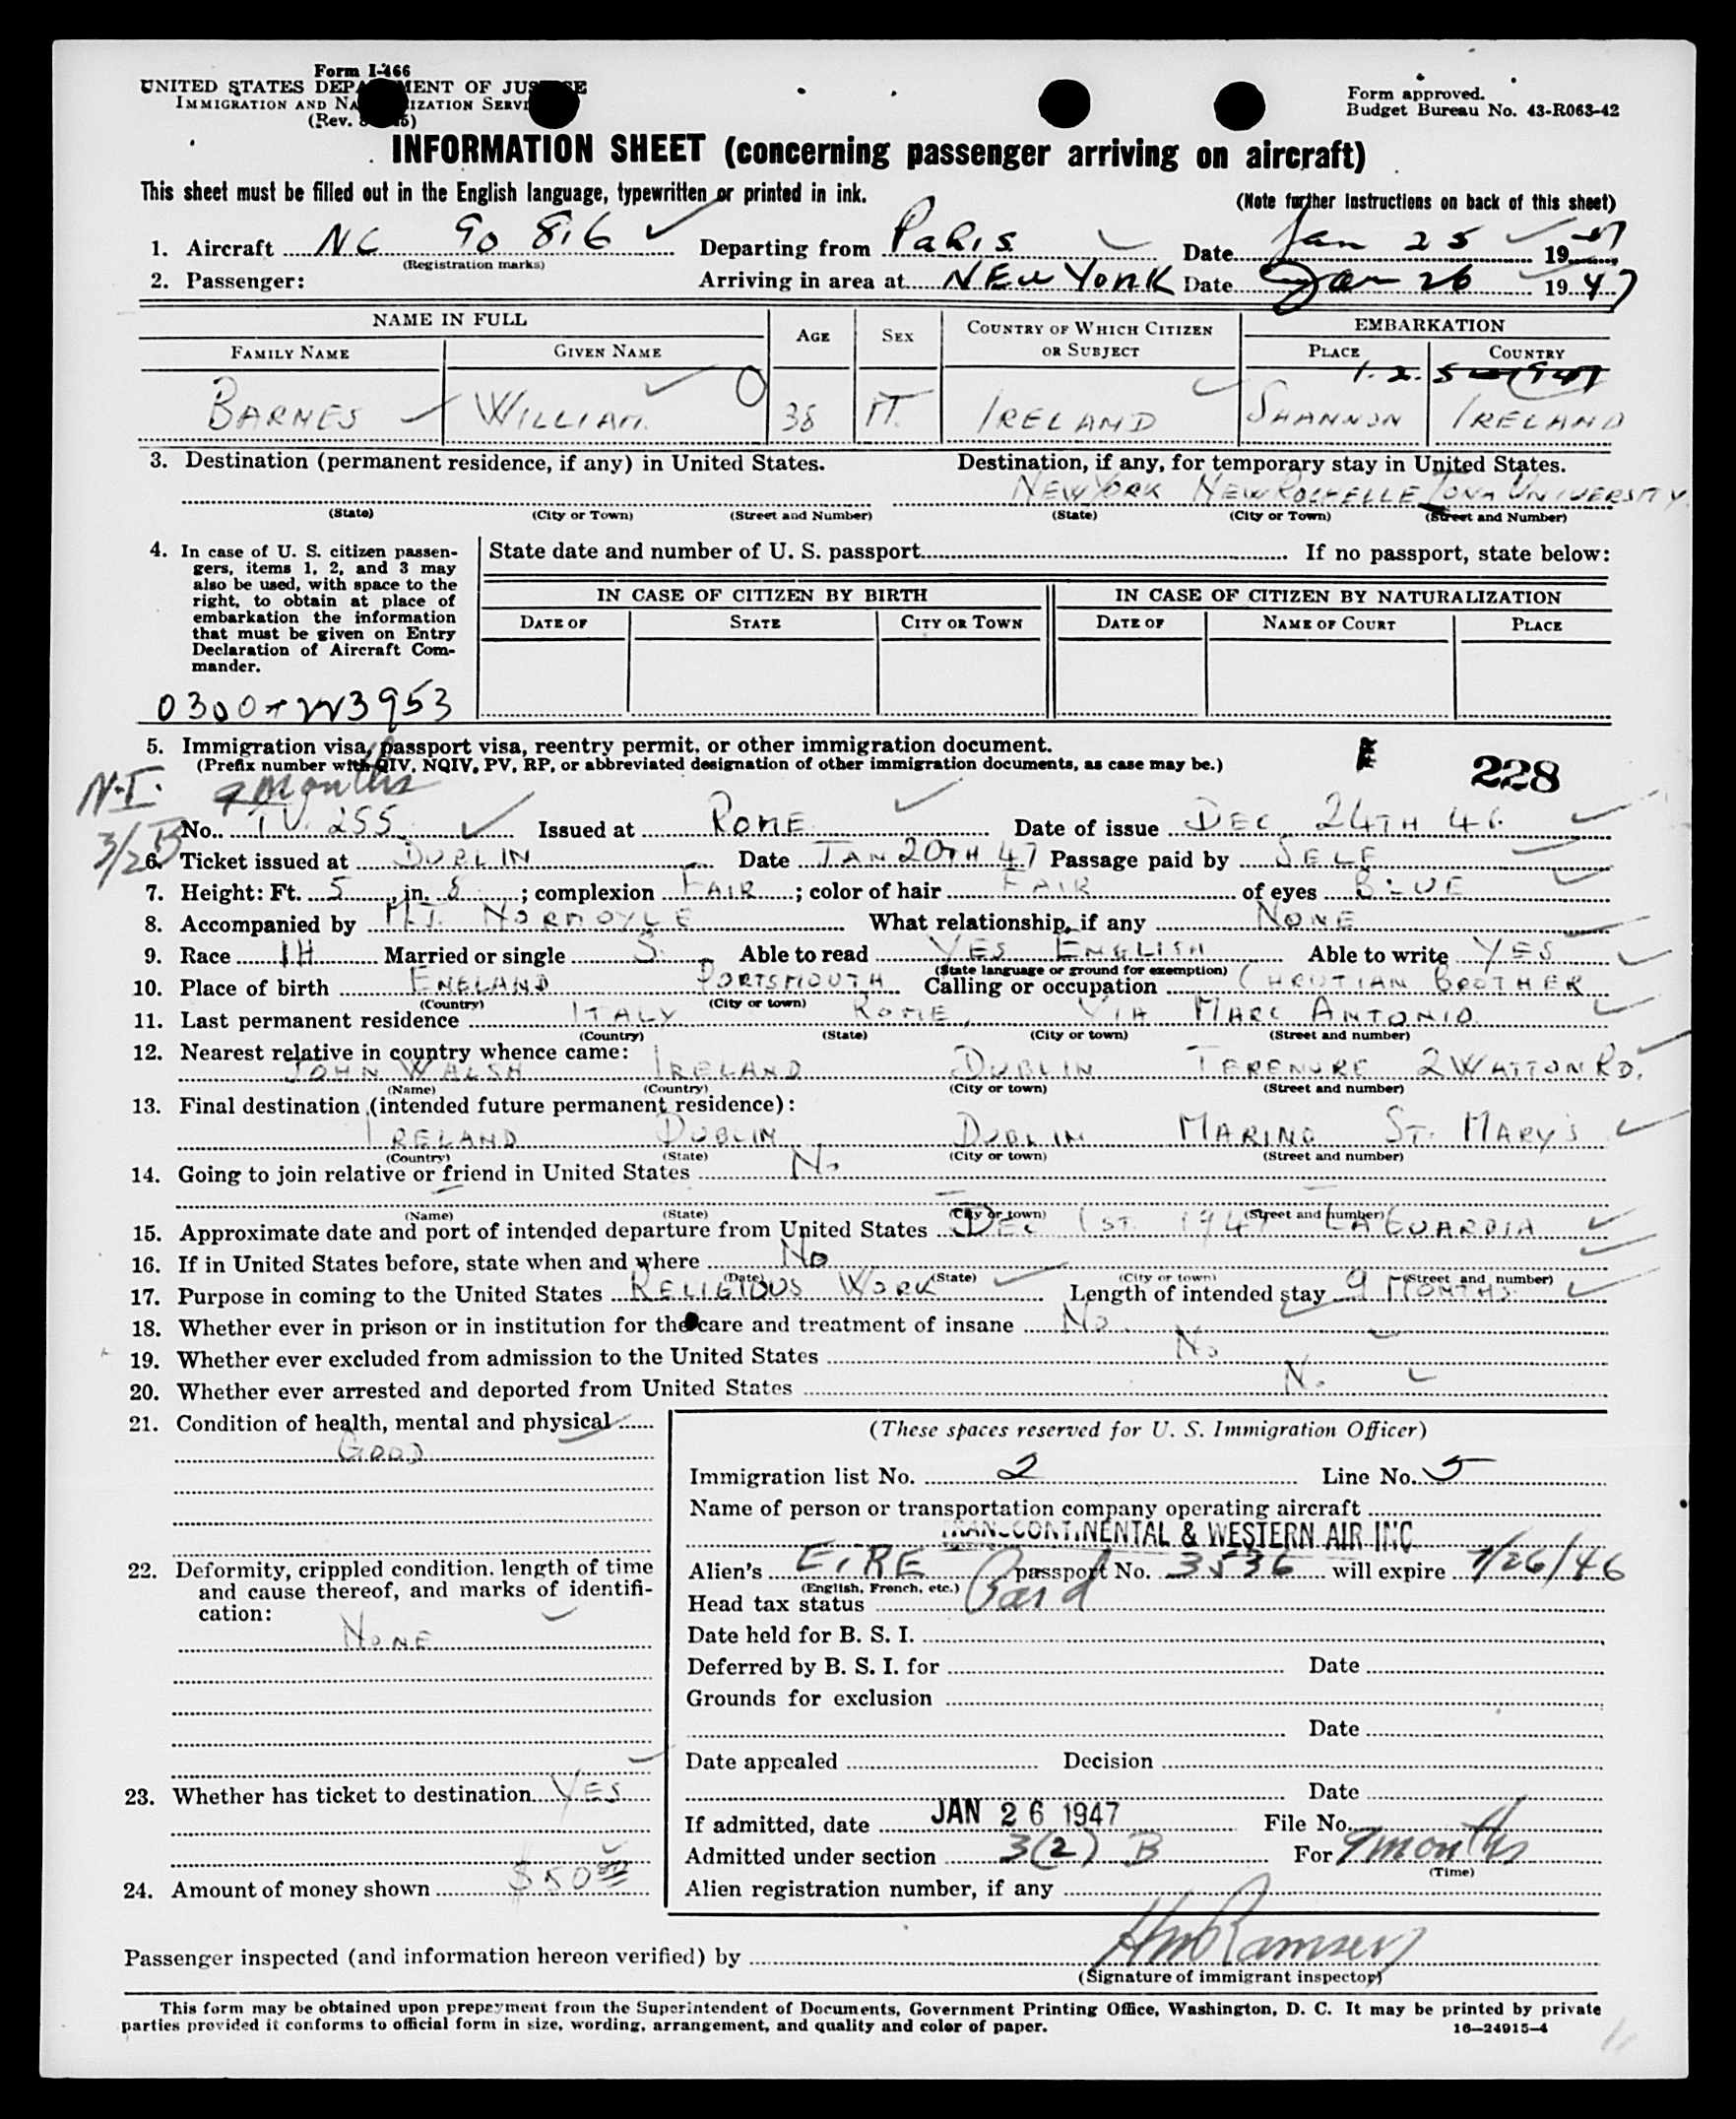 Form I-466
UNITED STATES DEPA MENT OF JUS E
IMMIGRATION AND NA IZATION SERVI
(Rev.
Form approved.
Budget Bureau No. 43-R063-42
INFORMATION SHEET (concerning passenger arriving on aircraft)
This sheet must be filled out in the English language, typewritten or printed in ink.
(Note further instructions on back of this sheet)
1. Aircraft NC 90 816 Departing from PARIS Date Jan 25 1947
(Registration marks)
2. Passenger: Arriving in area at NEW YORK Date Jan 26 1947
NAME IN FULL AGE SEX COUNTRY OF WHICH CITIZEN OR SUBJECT EMBARKATION
FAMILY NAME GIVEN NAME PLACE COUNTRY
BARNES WILLIAM 38 M. IRELAND SHANNON IRELAND
3. Destination (permanent residence, if any) in United States. Destination, if any, for temporary stay in United States.
NEW YORK NEW ROCHELLE IONA UNIVERSITY
(State) (City or Town) (Street and Number) (State) (City or Town) (Street and Number)
4. In case of U. S. citizen passen-
gers, items 1, 2, and 3 may
also be used, with space to the
right, to obtain at place of
embarkation the information
that must be given on Entry
Declaration of Aircraft Com-
mander.
State date and number of U. S. passport If no passport, state below:
IN CASE OF CITIZEN BY BIRTH IN CASE OF CITIZEN BY NATURALIZATION
DATE OF STATE CITY OR TOWN DATE OF NAME OF COURT PLACE
5. Immigration visa, passport visa, reentry permit, or other immigration document.
(Prefix number with QIV, NQIV, PV, RP, or abbreviated designation of other immigration documents, as case may be.)
228
N.I. 9 Months
No. 255 Issued at ROME Date of issue DEC 24TH 46
6. Ticket issued at DUBLIN Date JAN 20TH 47 Passage paid by SELF
7. Height: Ft. 5, in. 8; complexion FAIR; color of hair FAIR of eyes BLUE
8. Accompanied by M.J. NORMOYLE What relationship, if any NONE
9. Race IH Married or single S. Able to read YES ENGLISH Able to write YES
(State language or ground for exemption)
10. Place of birth ENGLAND PORTSMOUTH Calling or occupation CHRISTIAN BROTHER
(Country) (City or town)
11. Last permanent residence ITALY ROME, VIA MARC ANTONIO
(Country) (State) (City or town) (Street and number)
12. Nearest relative in country whence came:
JOHN WALSH IRELAND DUBLIN TERENURE 2 WATTON RD.
(Name) (Country) (City or town) (Street and number)
13. Final destination (intended future permanent residence):
IRELAND DUBLIN DUBLIN MARINO ST. MARY'S
(Country) (State) (City or town) (Street and number)
14. Going to join relative or friend in United States No
(Name) (State) (City or town) (Street and number)
15. Approximate date and port of intended departure from United States DEC 1ST. 1947 LA GUARDIA
16. If in United States before, state when and where No
(Date) (State) (City or town) (Street and number)
17. Purpose in coming to the United States RELIGIOUS WORK Length of intended stay 9 MONTHS
18. Whether ever in prison or in institution for the care and treatment of insane No
19. Whether ever excluded from admission to the United States No
20. Whether ever arrested and deported from United States No
21. Condition of health, mental and physical
GOOD
22. Deformity, crippled condition, length of time
and cause thereof, and marks of identifi-
cation:
NONE
23. Whether has ticket to destination YES
24. Amount of money shown $50.00
(These spaces reserved for U. S. Immigration Officer)
Immigration list No. 2 Line No. 5
Name of person or transportation company operating aircraft
TRANSCONTINENTAL & WESTERN AIR INC
Alien's EIRE passport No. 3536 will expire 7/26/46
(English, French, etc.)
Head tax status Paid
Date held for B. S. I.
Deferred by B. S. I. for Date
Grounds for exclusion
Date
Date appealed Decision
Date
If admitted, date JAN 26 1947 File No.
Admitted under section 3(2) B For 9 months
(Time)
Alien registration number, if any
Passenger inspected (and information hereon verified) by HM Ramsey
(Signature of immigrant inspector)
This form may be obtained upon prepayment from the Superintendent of Documents, Government Printing Office, Washington, D. C. It may be printed by private
parties provided it conforms to official form in size, wording, arrangement, and quality and color of paper.
16—24915-4